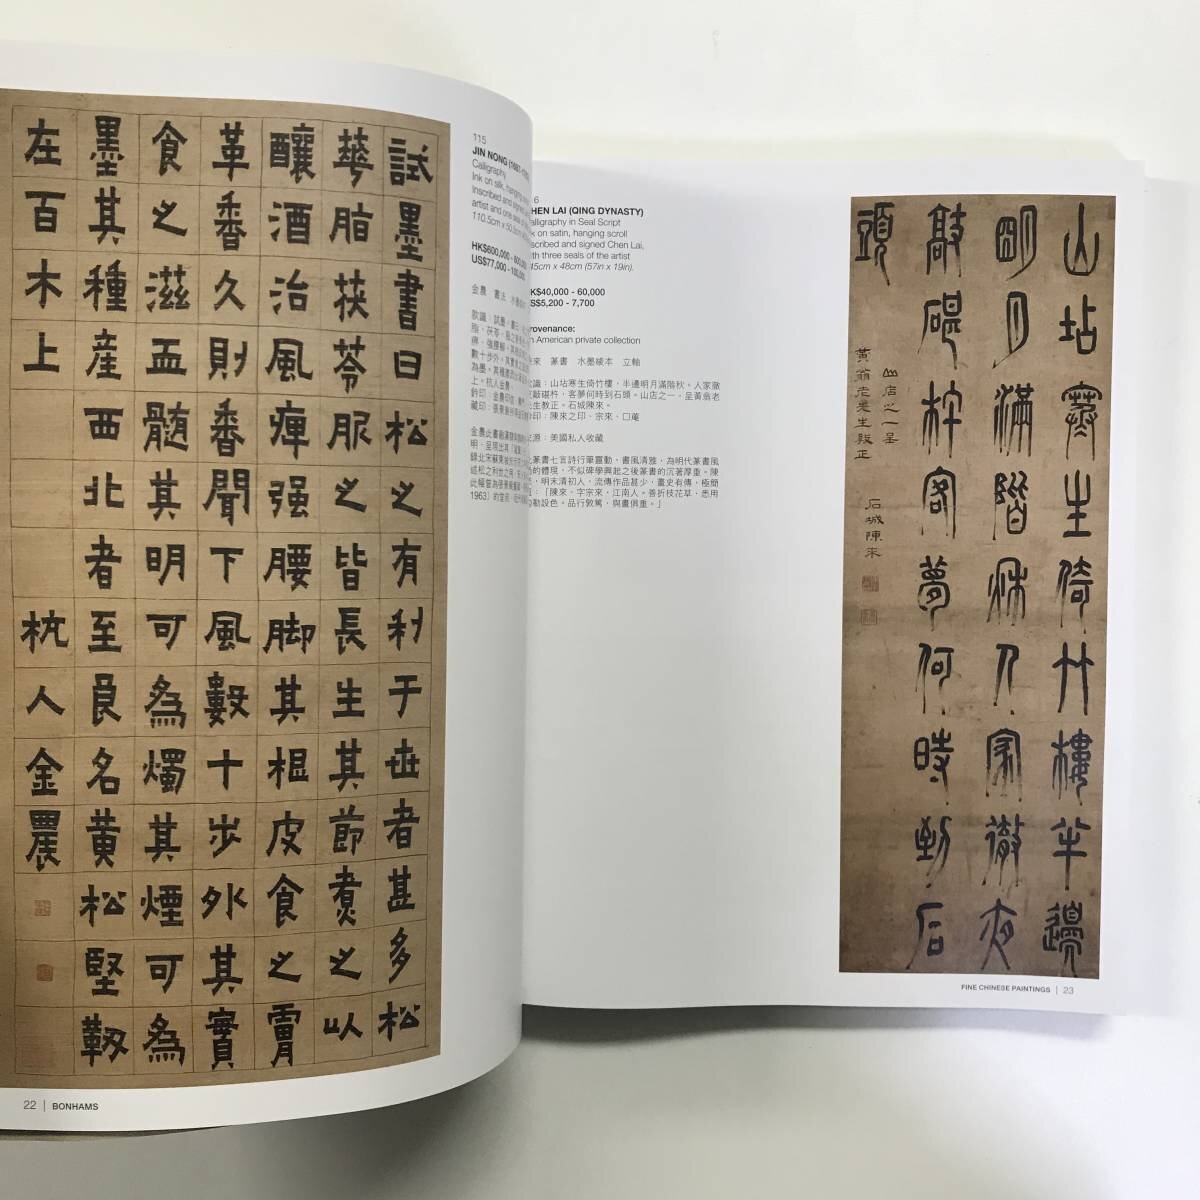 試墨書曰松之有利于世者甚多松
華脂茯苓服之皆長生其節煮之以
釀酒治風痺强腰脚其根皮食之膚
革香久則香聞下風數十步外其實
食之滋血髓其明可為燭其煙可為
墨其種産西北者至良名黄松堅韌
在百木上 杭人金農
115
JIN NONG (1687-
Calligraphy
Ink on silk, hanging
Inscribed and signed
artist and one seal of
110.5cm x 50.
HK$600,000 - 800,000
US$77,000 - 100,000
金農 書法 水墨
22 | BONHAMS
6
HEN LAI (QING DYNASTY)
alligraphy in Seal Script
k on satin, hanging scroll
scribed and signed Chen Lai,
th three seals of the artist
45cm x 48cm (57in x 19in).
K$40,000 - 60,000
S$5,200 - 7,700
ovenance:
n American private collection
來 篆書 水墨綾本 立軸
識：山坫寒生倚竹樓，半邊明月滿階秋。人家徹
敲碪杵，客夢何時到石頭。山店之一，呈黃翁老
生教正。石城陳來。
印：陳來之印、宗來、口菴
源：美國私人收藏
篆書七言詩行筆靈動，書風清雅，為明代篆書風
的體現，不似碑學興起之後篆書的沉著厚重。陳
，明末清初人，流傳作品甚少，畫史有傳，極簡
：「陳來，字宗來，江南人。善折枝花草，悉用
勒設色。品行敦篤，與畫俱重。」
山坫寒生倚竹樓半邊
明月滿階秋人家徹夜
敲碪杵客夢何時到石
頭
山店之一呈
黃翁老先生教正 石城陳來
FINE CHINESE PAINTINGS | 23